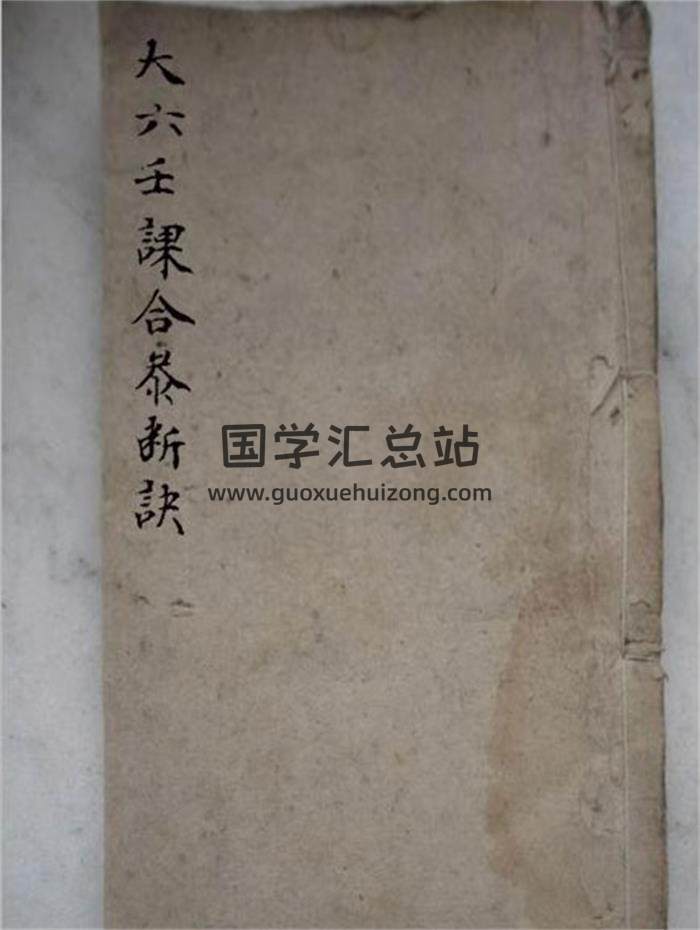 大六壬課合参断訣
国学汇总站
www.guoxuehuizong.com